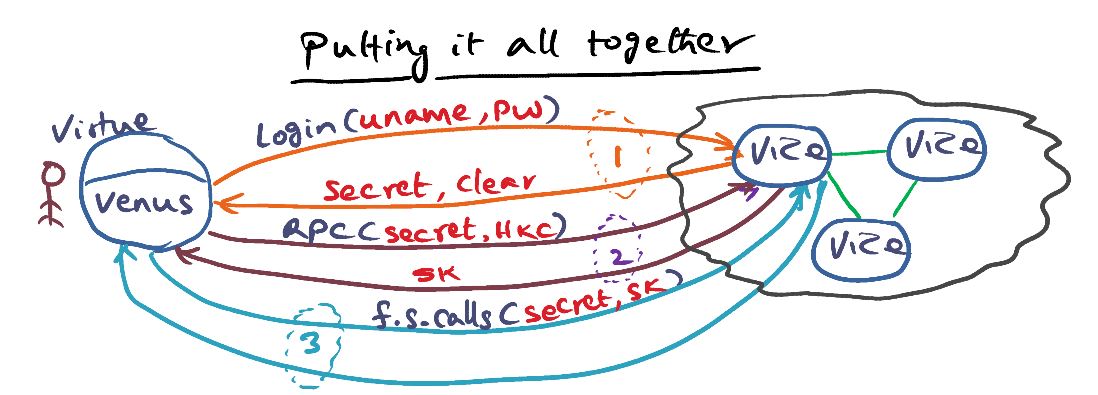 Putting it all together
Virtue
Venus
Login (uname, pw)
1
secret, clear
RPC ( secret, HKC )
2
SK
f.s.calls ( secret, SK )
3
Vice
Vice
Vice